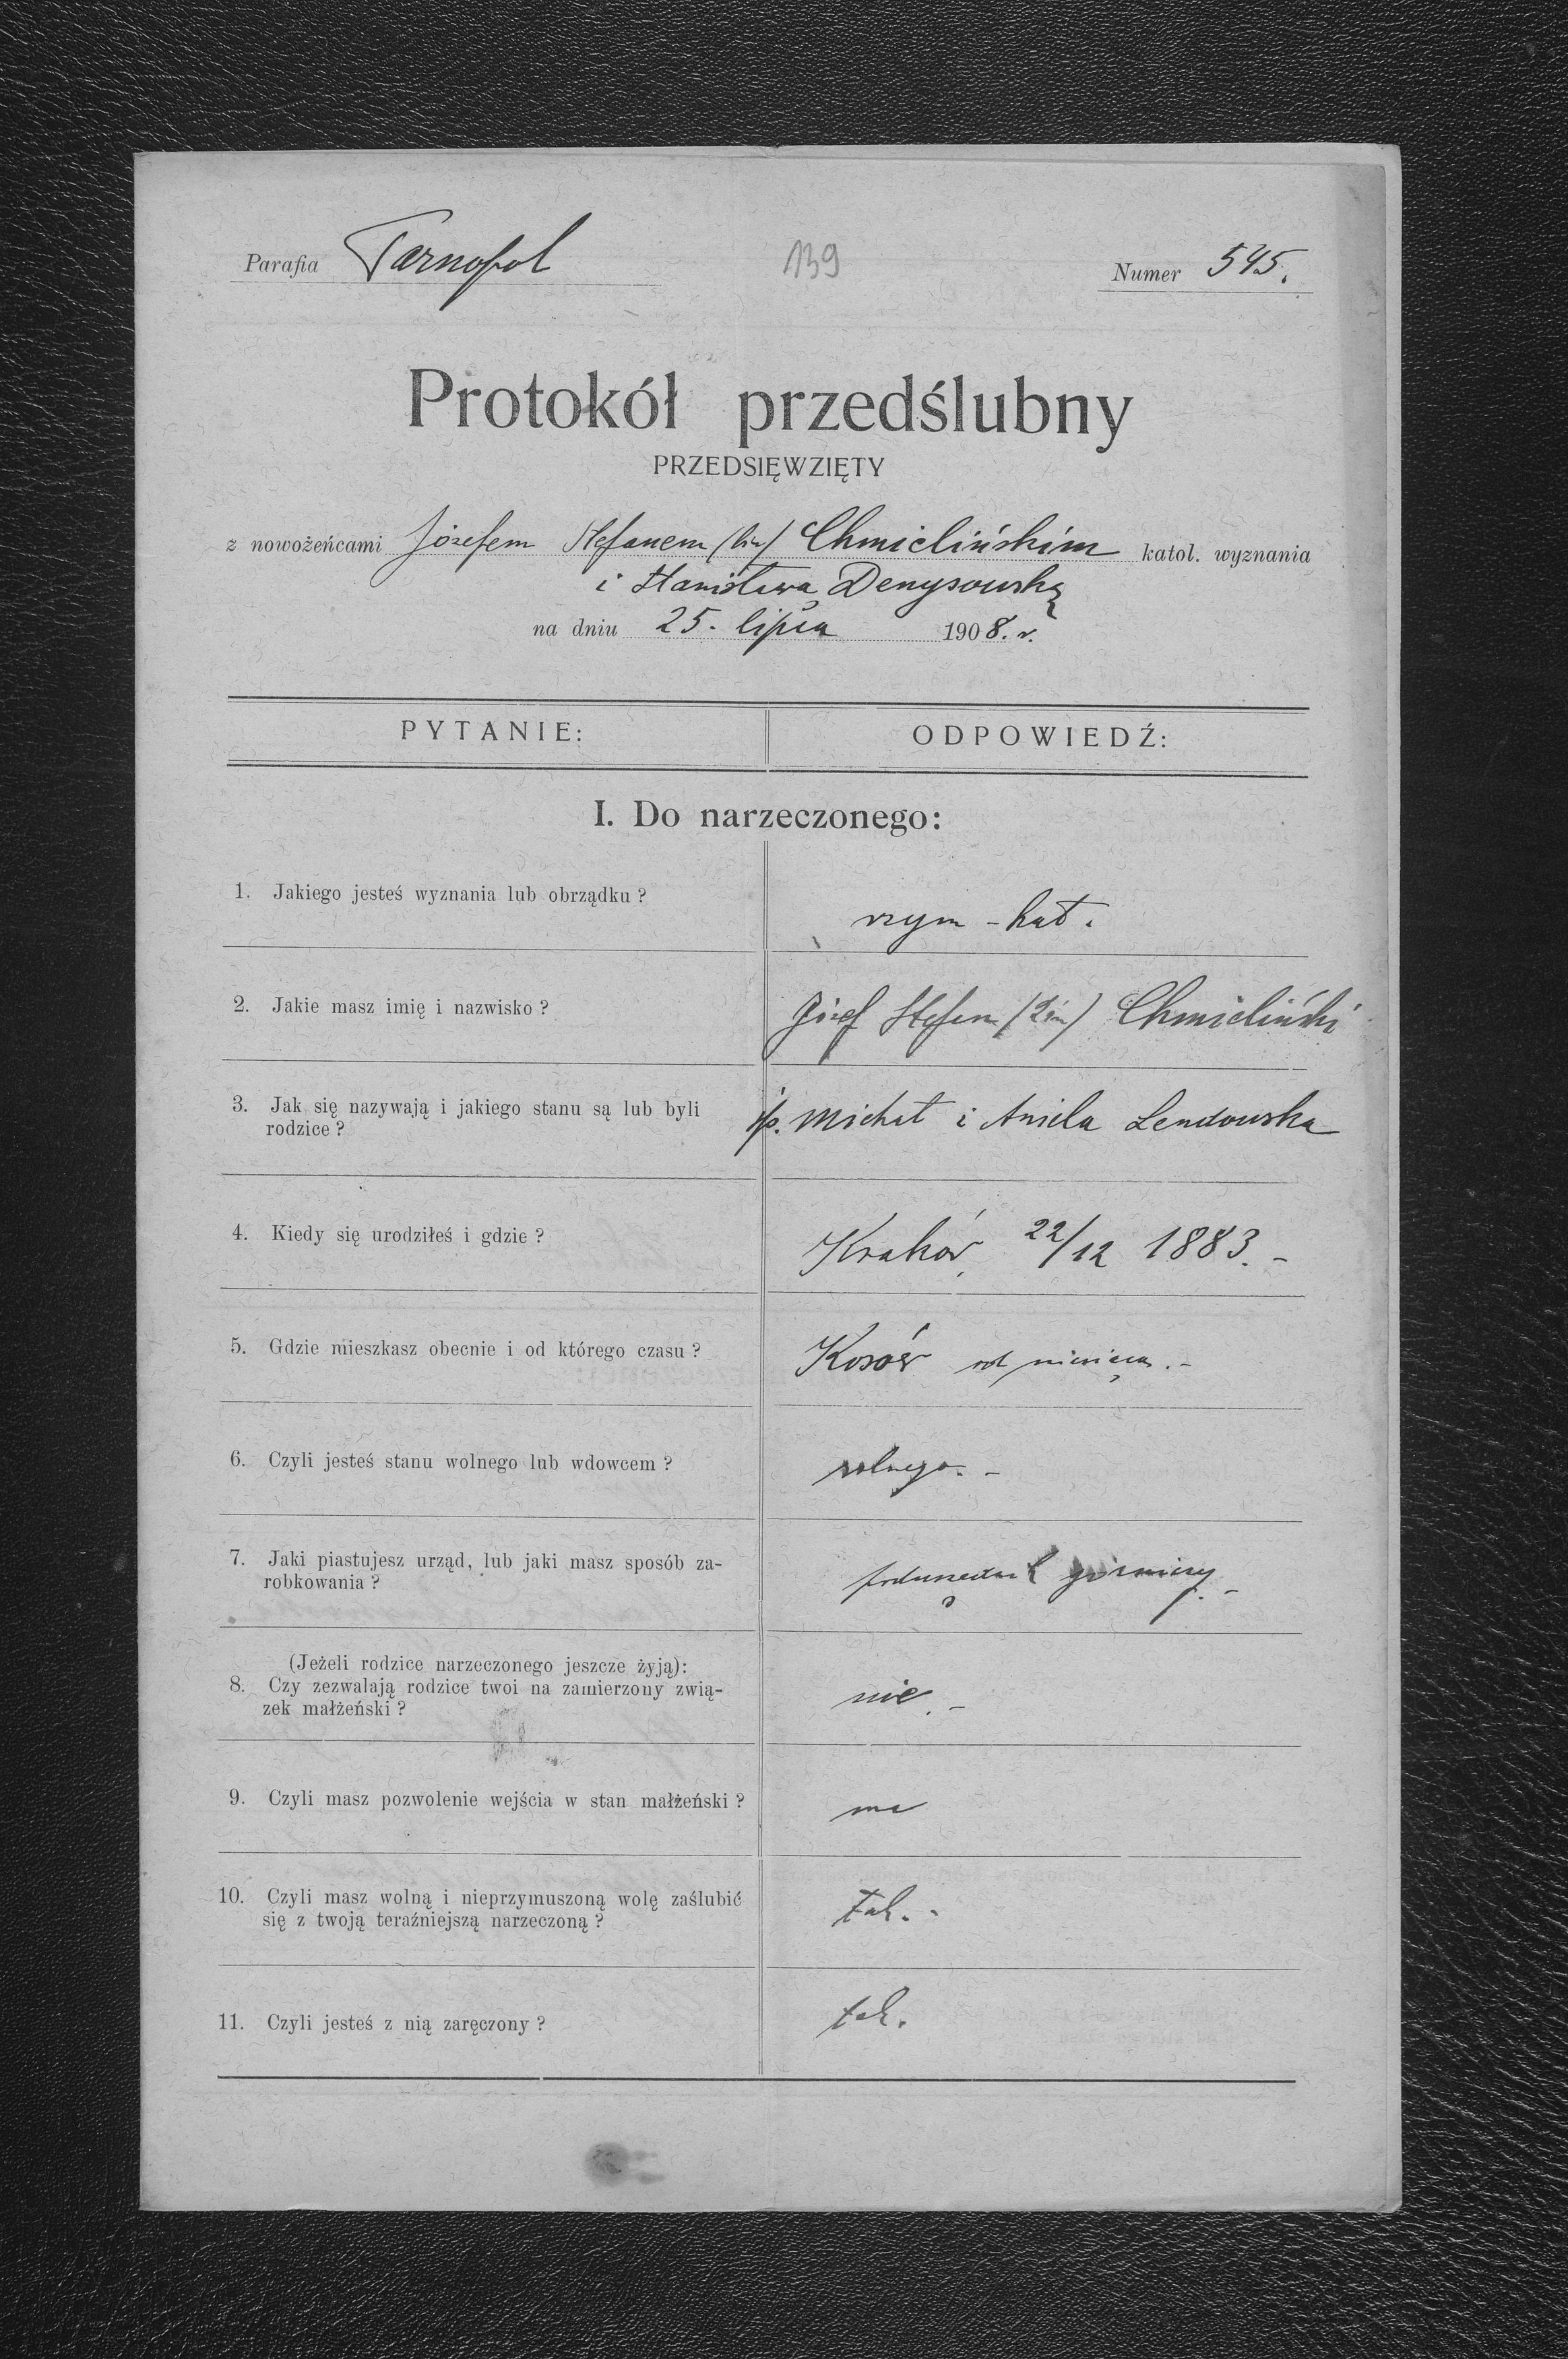 Parafia Tarnopol 139 Numer 545.
Protokół przedślubny
PRZEDSIĘWZIĘTY
z nowożeńcami Józefem Stefanem (2im) Chmielińskim katol. wyznania
i Stanisławą Denysowską
na dniu 25. lipca 1908. r.
PYTANIE: ODPOWIEDŹ:
I. Do narzeczonego:
1. Jakiego jesteś wyznania lub obrządku ?
rzym - kat.
2. Jakie masz imię i nazwisko ?
Józef Stefan (2im) Chmieliński
3. Jak się nazywają i jakiego stanu są lub byli
rodzice ?
śp. Michał i Aniela Lendowska
4. Kiedy się urodziłeś i gdzie ?
Kraków, 22/12 1883. -
5. Gdzie mieszkasz obecnie i od którego czasu ?
Kosów od miesiąca. -
6. Czyli jesteś stanu wolnego lub wdowcem ?
wolnego. -
7. Jaki piastujesz urząd, lub jaki masz sposób za-
robkowania ?
górniczy. -
(Jeżeli rodzice narzeczonego jeszcze żyją):
8. Czy zezwalają rodzice twoi na zamierzony zwią-
zek małżeński ?
nie. -
9. Czyli masz pozwolenie wejścia w stan małżeński ?
ma
10. Czyli masz wolną i nieprzymuszoną wolę zaślubić
się z twoją teraźniejszą narzeczoną ?
tak. -
11. Czyli jesteś z nią zaręczony ?
tak.